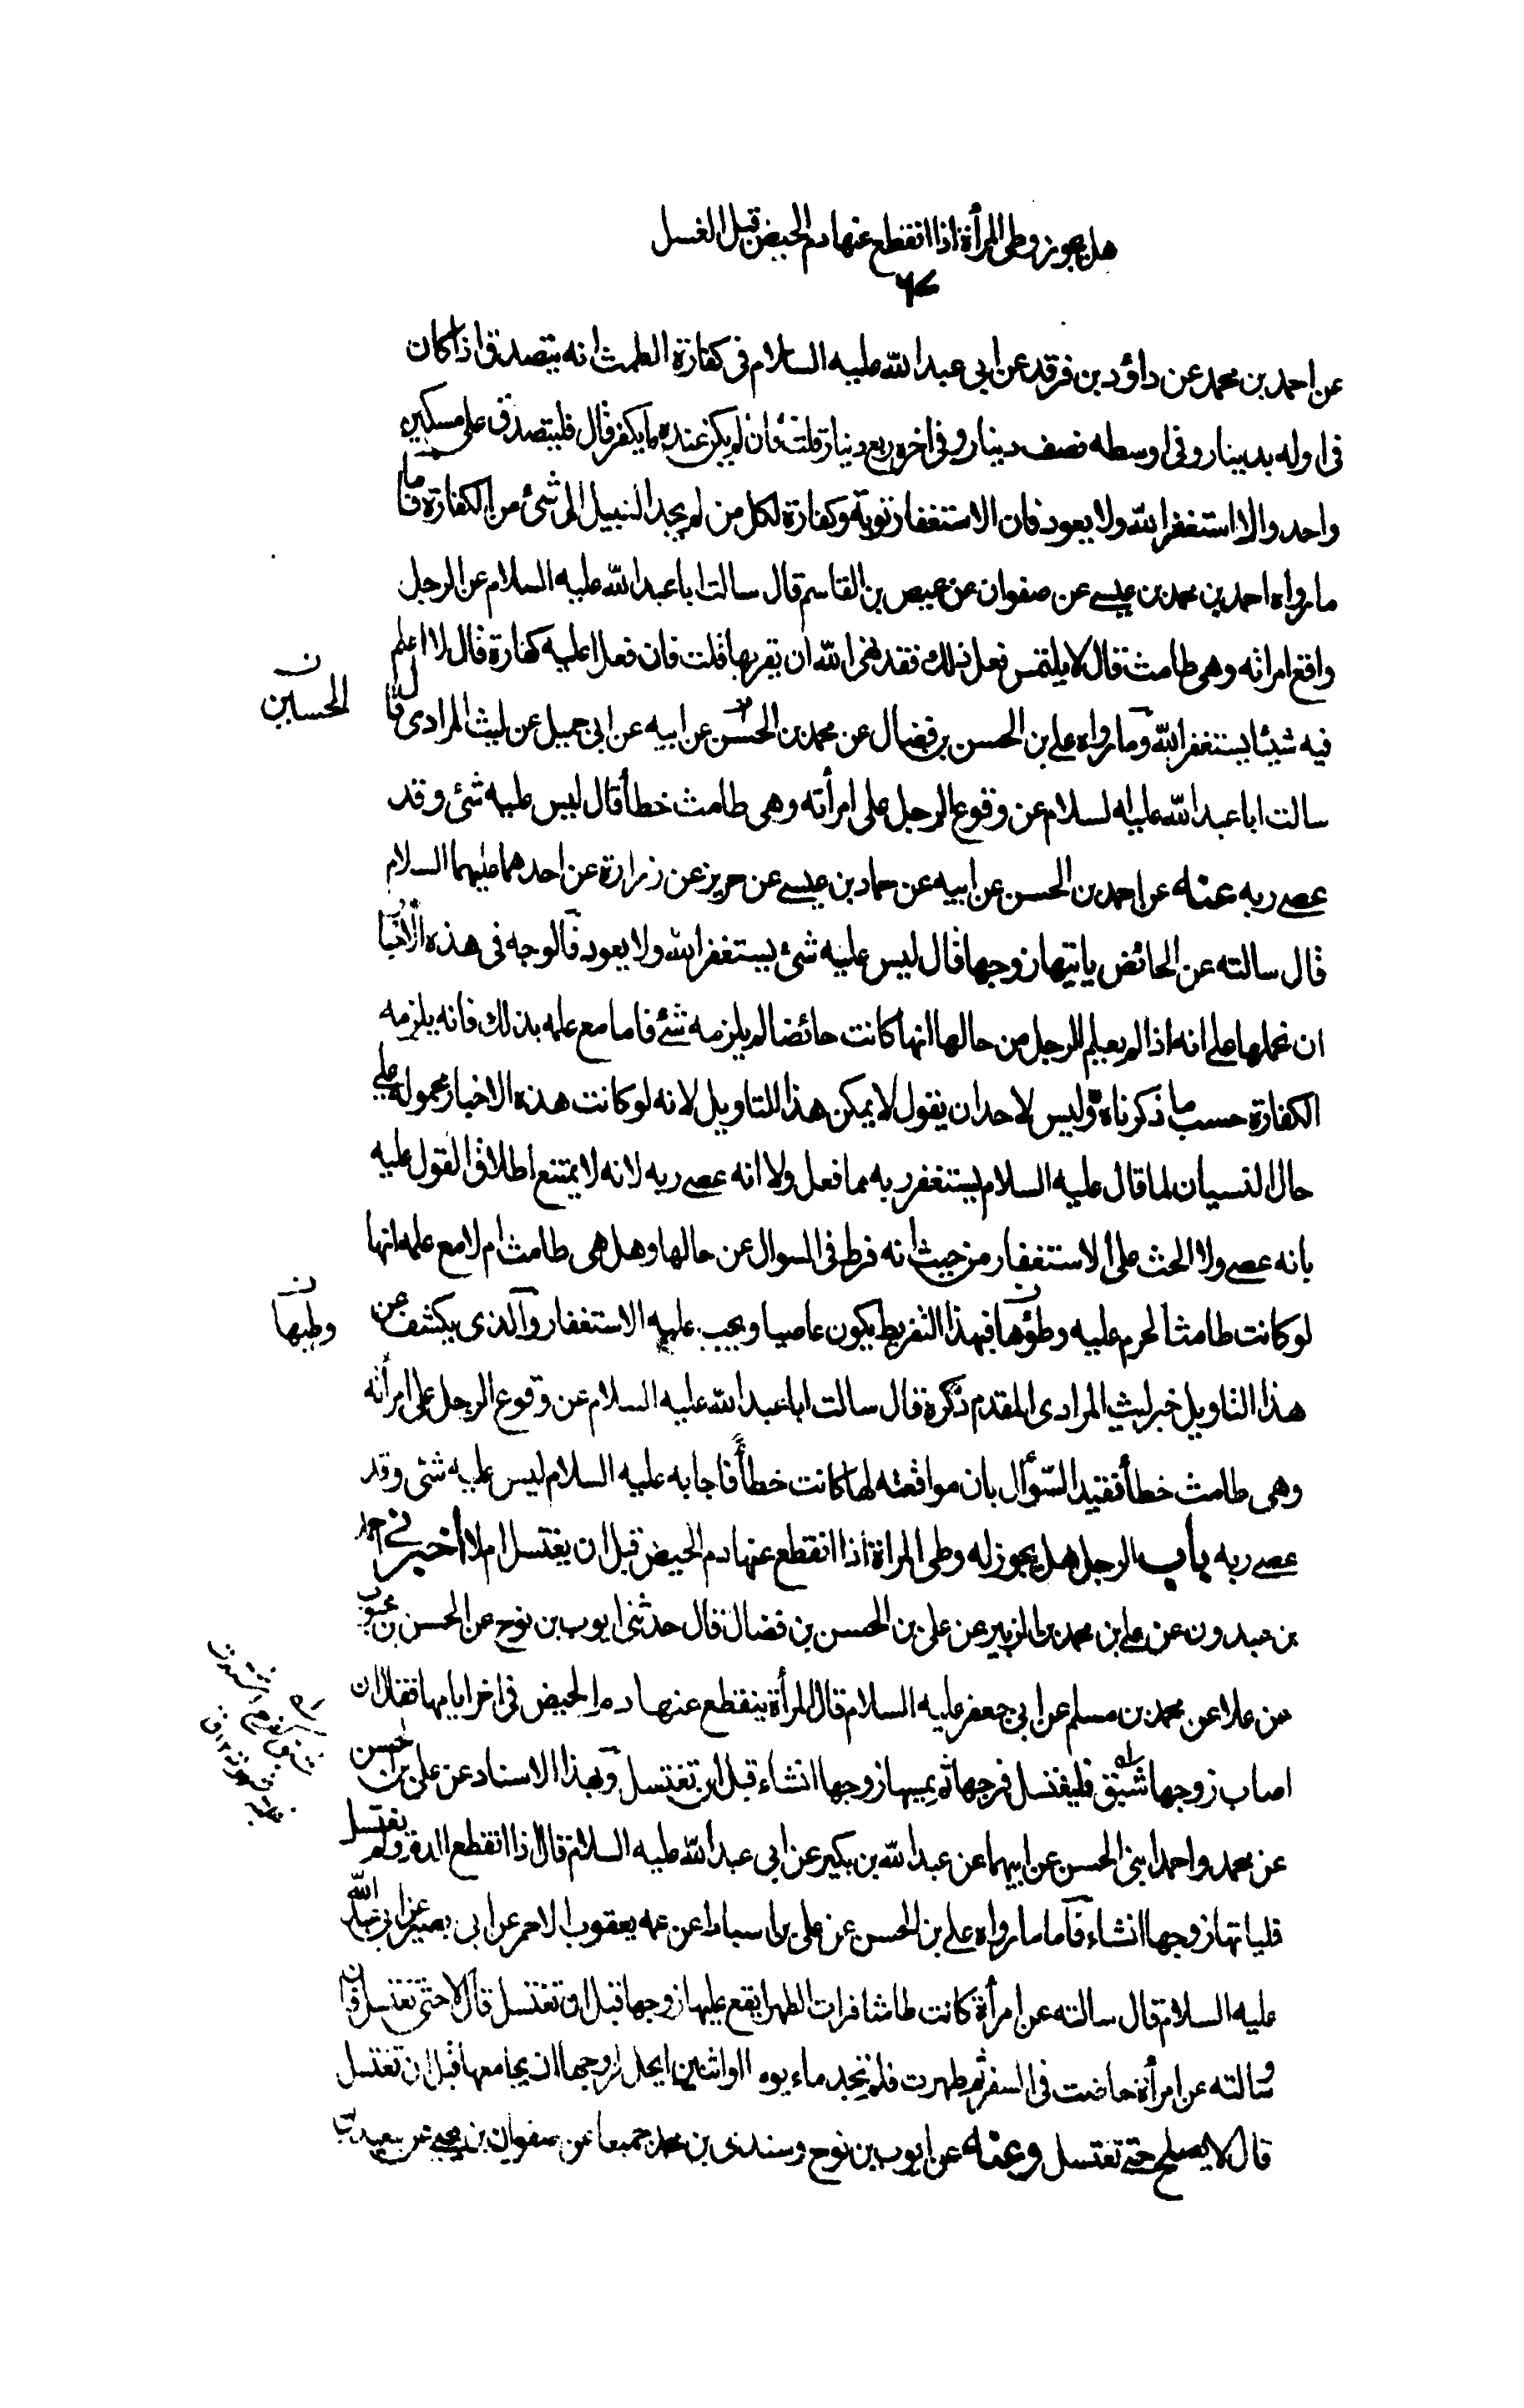 هل يجوز وطى المرأة اذا انقطع عنها دم الحيض قبل الغسل
٦٧
عن احمد بن محمد عن داؤد بن فرقد عن ابي عبد الله عليه السلام فى كفارة الطمث انه يتصدق اذا كان
فى اوله بدينار وفى اوسطه نصف دينار وفى اخره ربع دينار قلت فان لم يكن عنده ما يكفر قال فليتصدق على مسكين
واحد والا استغفر الله ولا يعود فان الاستغفار توبة وكفارة لكل من لم يجد السبيل الى شئ من الكفارة فاما
ما رواه احمد بن محمد بن عيسى عن صفوان عن عيص بن القاسم قال سالت ابا عبد الله عليه السلام عن الرجل
واقع امراته وهى طامث قال لا يلتمس فعل ذلك فقد نهى الله ان يقربها قلت فان فعل اعليه كفارة قال لا اعلم
فيه شيئا يستغفر الله وما رواه على بن الحسن بن فضال عن محمد بن الحسن عن ابيه عن ابى جميل عن ليث المرادى قال
الحسين
ن
سالت ابا عبد الله عليه السلام عن وقوع الرجل على امرأته وهى طامث خطأ قال ليس عليه شئ وقد
عصى ربه عنه عن احمد بن الحسن عن ابيه عن حماد بن عيسى عن حريز عن زرارة عن احدهما عليهما السلام
قال سالته عن الحائض ياتيها زوجها قال ليس عليه شئ يستغفر الله ولا يعود فالوجه فى هذه الاخبار
ان نحملها على انه اذا لم يعلم الرجل من حالها انها كانت حائضا لم يلزمه شئ فاما مع علمه بذلك فانه يلزمه
الكفارة حسب ما ذكرناه وليس لاحد ان يقول لا يمكن هذا التاويل لانه لو كانت هذه الاخبار محمولة على
حال النسيان لما قال عليه السلام يستغفر ربه مما فعل ولا انه عصى ربه لانه لا يمتنع اطلاق القول عليه
بانه عصى ولا الحث على الاستغفار من حيث انه فرط فى السوال عن حالها وهل هى طامث ام لا مع علمه انها
لو كانت طامثا لحرم عليه وطؤها فبهذا التفريط يكون عاصيا ويجب عليه الاستغفار والذى يكشف عن
وطيها
ن
هذا التاويل خبر ليث المرادى المقدم ذكره قال سالت ابا عبد الله عليه السلام عن وقوع الرجل على امرأته
وهى طامث خطأ فقيد السّؤال بان مواقعته لها كانت خطأ فاجابه عليه السلام ليس عليه شئ وقد
عصى ربه باب الرجل هل يجوز له وطى المراة اذا انقطع عنها دم الحيض قبل ان يغتسل ام لا اخبرنى احمد
بن عبدون عن على بن محمد بن الزبير عن على بن الحسن بن فضال قال حدثنى ايوب بن نوح عن الحسن بن محبوب
عن علا عن محمد بن مسلم عن ابى جعفر عليه السلام قال المرأة ينقطع عنها دم الحيض فى اخر ايامها فقال ان
اصاب زوجها شبق فليغتسل فرجها ثم يمسها زوجها انشاء قبل ان تغتسل وبهذا الاسناد عن على بن الحسن
عن محمد واحمد ابنى الحسن عن ابيهما عن عبد الله بن بكير عن ابى عبد الله عليه السلام قال اذا انقطع الدم ولم يغتسل
فلياتها زوجها انشاء فاما ما رواه على بن الحسن عن على بن اسباط عن عمه يعقوب الاحمر عن ابى بصير عن ابى عبد الله
عليه السلام قال سالته عن امرأة كانت طامثا فرات الطهر ايقع عليها زوجها قبل ان تغتسل قال لا حتى تغتسل قال
وسالته عن امرأة حاضت فى السفر ثم طهرت فلم تجد ماء يوما او اثنين ايحل لزوجها ان يجامعها قبل ان تغتسل
قال لا يصلح حتى تغتسل وعنه عن ايوب بن نوح وسندى بن محمد جميعا عن صفوان بن يحيى عن سعيد بن